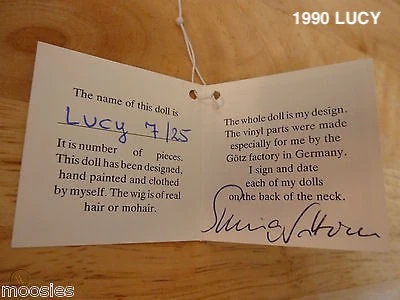 1990 LUCY
The name of this doll is
LUCY 7/25
It is number of pieces.
This doll has been designed,
hand painted and clothed
by myself. The wig is of real
hair or mohair.
The whole doll is my design.
The vinyl parts were made
especially for me by the
Götz factory in Germany.
I sign and date
each of my dolls
on the back of the neck.
moosies